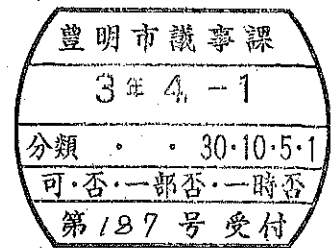 豊明市議事課
3年 4. -1
分類 ・ ・ 30・10・5・1
可・否・一部否・一時否
第187号受付